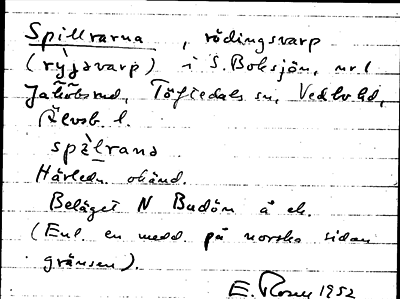 Spillrarna, rödingsvarp
(ry̡jsvarp) i S. Boksjön, nr 1
Jakobsrud, Töftedals sn, Vedbo hd,
Älvsb. l.
spìlrana
Härledn. okänd.
Beläget N Budön å ek.
(Enl. en medd. på norska sidan
gränsen).
E. Rosn 1952